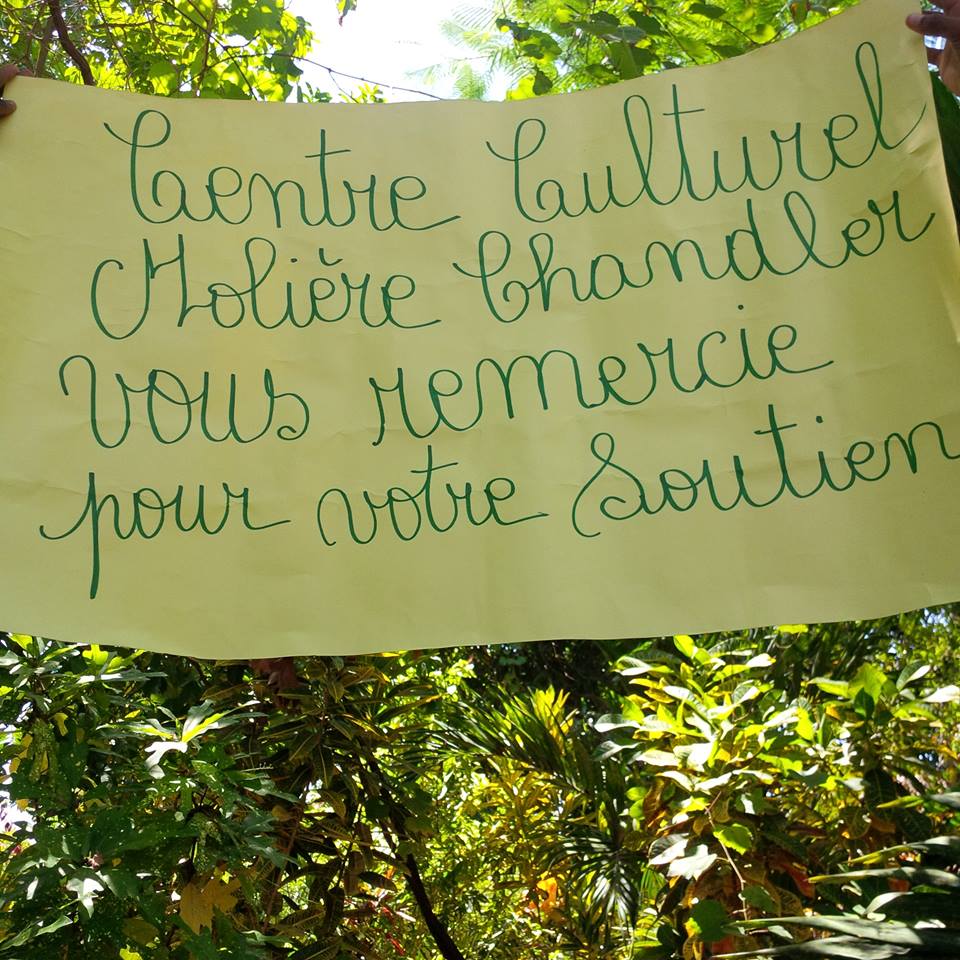 Centre Culturel
Molière Chandler
vous remercie
pour votre Soutien